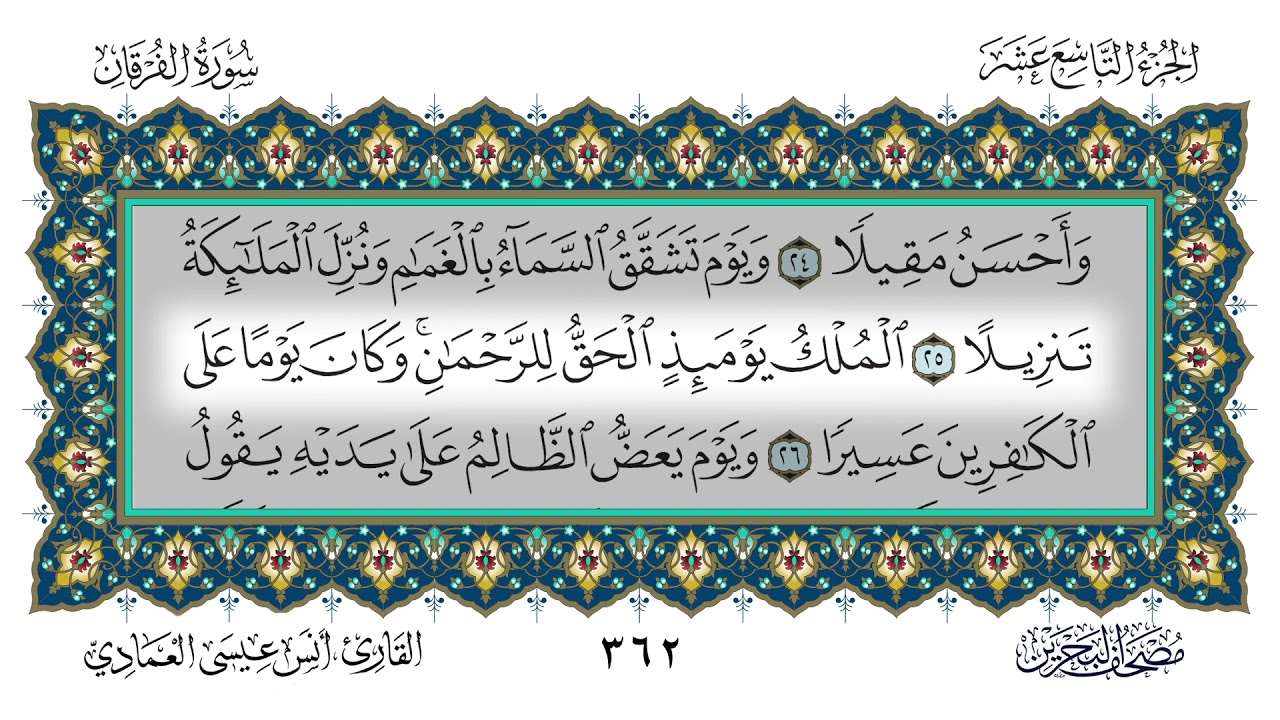 الجزء التاسع عشر
سورة الفرقان
وَأَحْسَنُ مَقِيلًا ٢٤ وَيَوْمَ تَشَقَّقُ ٱلسَّمَآءُ بِٱلْغَمَٰمِ وَنُزِّلَ ٱلْمَلَٰٓئِكَةُ
تَنزِيلًا ٢٥ ٱلْمُلْكُ يَوْمَئِذٍ ٱلْحَقُّ لِلرَّحْمَٰنِۚ وَكَانَ يَوْمًا عَلَى
ٱلْكَٰفِرِينَ عَسِيرًا ٢٦ وَيَوْمَ يَعَضُّ ٱلظَّالِمُ عَلَىٰ يَدَيْهِ يَقُولُ
مصحف البحرين
٣٦٢
القارئ، أنس عيسى العمادي